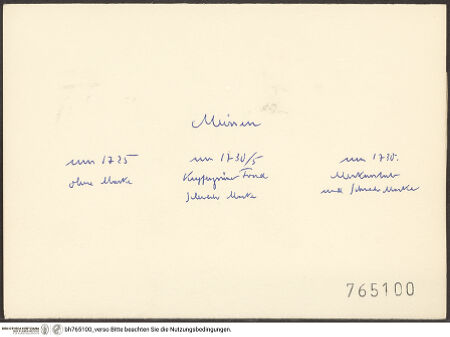 Meissen
um 1725
ohne Marke
um 1730/5
Kupfergrüner Fond
Schwerter Marke
um 1730.
und Marke
765100
bh765100_verso Bitte beachten Sie die Nutzungsbedingungen.